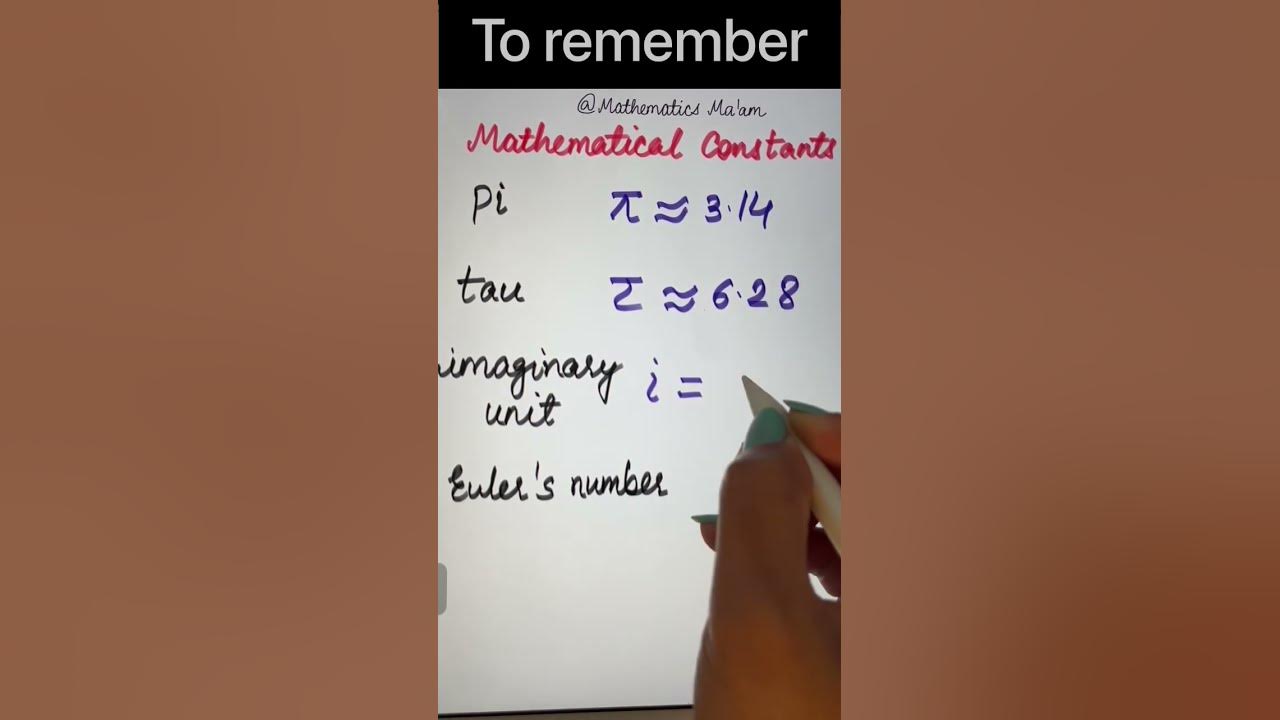 To remember
@Mathematics Ma'am
Mathematical Constants
Pi π ≈ 3.14
tau τ ≈ 6.28
imaginary
unit i =
Euler's number